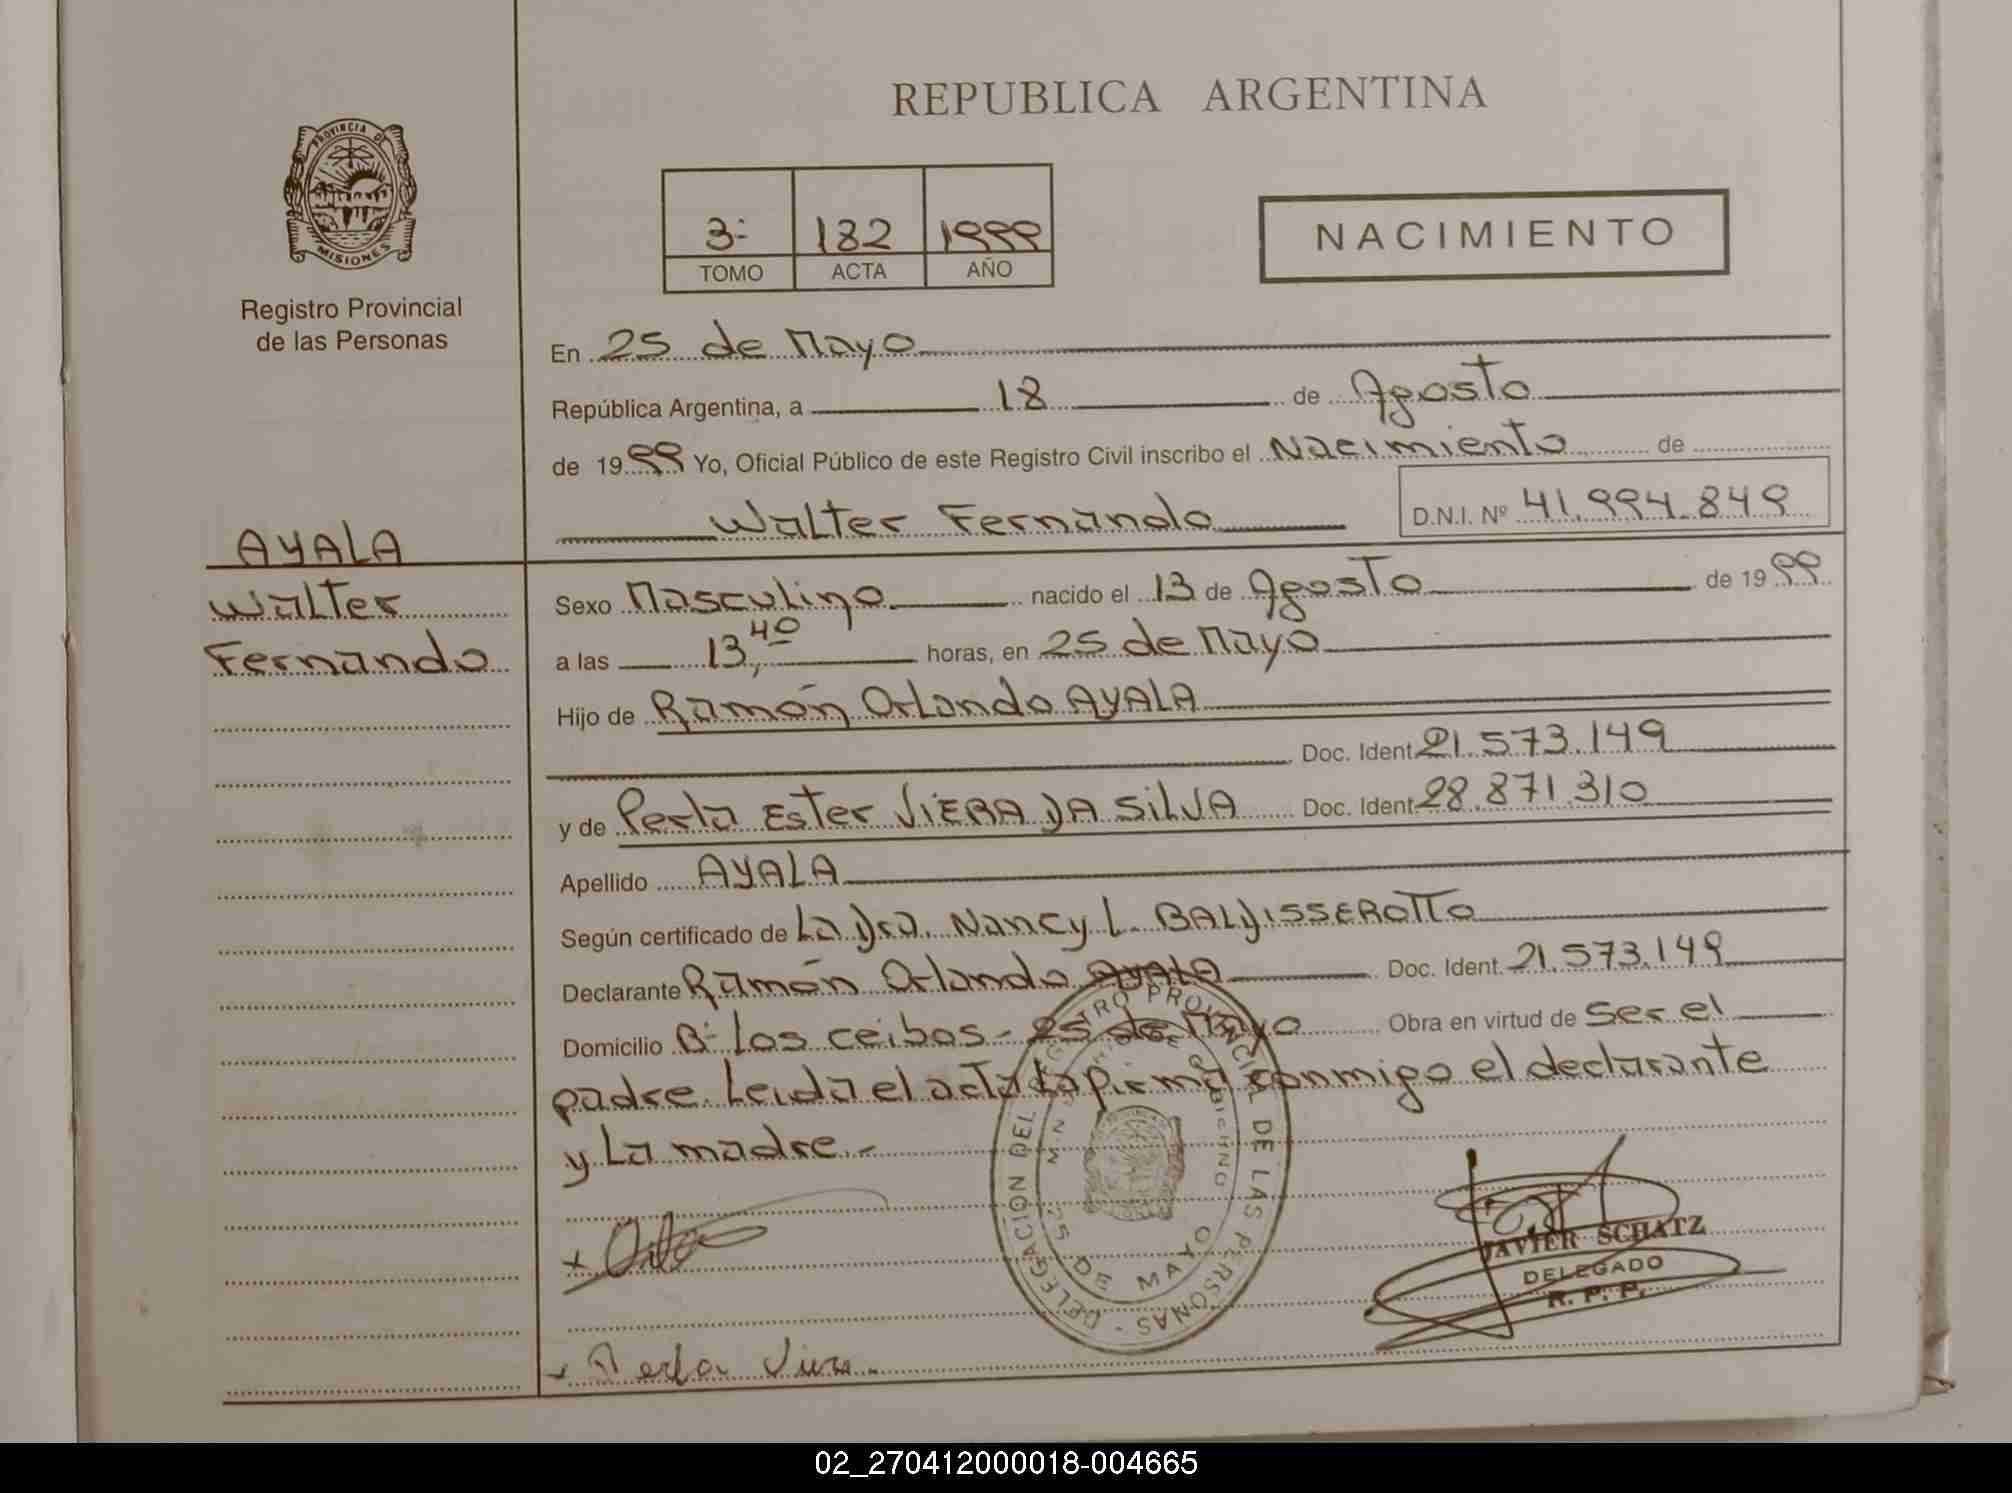 REPUBLICA ARGENTINA
PROVINCIA DE MISIONES
Registro Provincial
de las Personas
3- 182 1999
TOMO ACTA AÑO
NACIMIENTO
En 25 de Mayo
República Argentina, a 18 de Agosto
de 1999 Yo, Oficial Público de este Registro Civil inscribo el Nacimiento de
Walter Fernando D.N.I. Nº 41.994.849
AYALA
Walter
Fernando
Sexo Masculino nacido el 13 de Agosto de 1999
a las 13,40 horas, en 25 de Mayo
Hijo de Ramón Orlando AYALA
Doc. Ident. 21.573.149
y de Perla Ester VIERA DA SILVA Doc. Ident. 28.871.310
Apellido AYALA
Según certificado de La Dra. Nancy L. BALDISSEROTTO
Declarante Ramón Orlando AYALA Doc. Ident. 21.573.149
Domicilio Bº Los ceibos - 25 de Mayo Obra en virtud de Ser el
padre. Leida el acta La firma conmigo el declarante
y La madre.-
DELEGACION DEL REGISTRO PROVINCIAL DE LAS PERSONAS -
25 DE MAYO
JAVIER SCHATZ
DELEGADO
R. P. P.
Perla
02_270412000018-004665